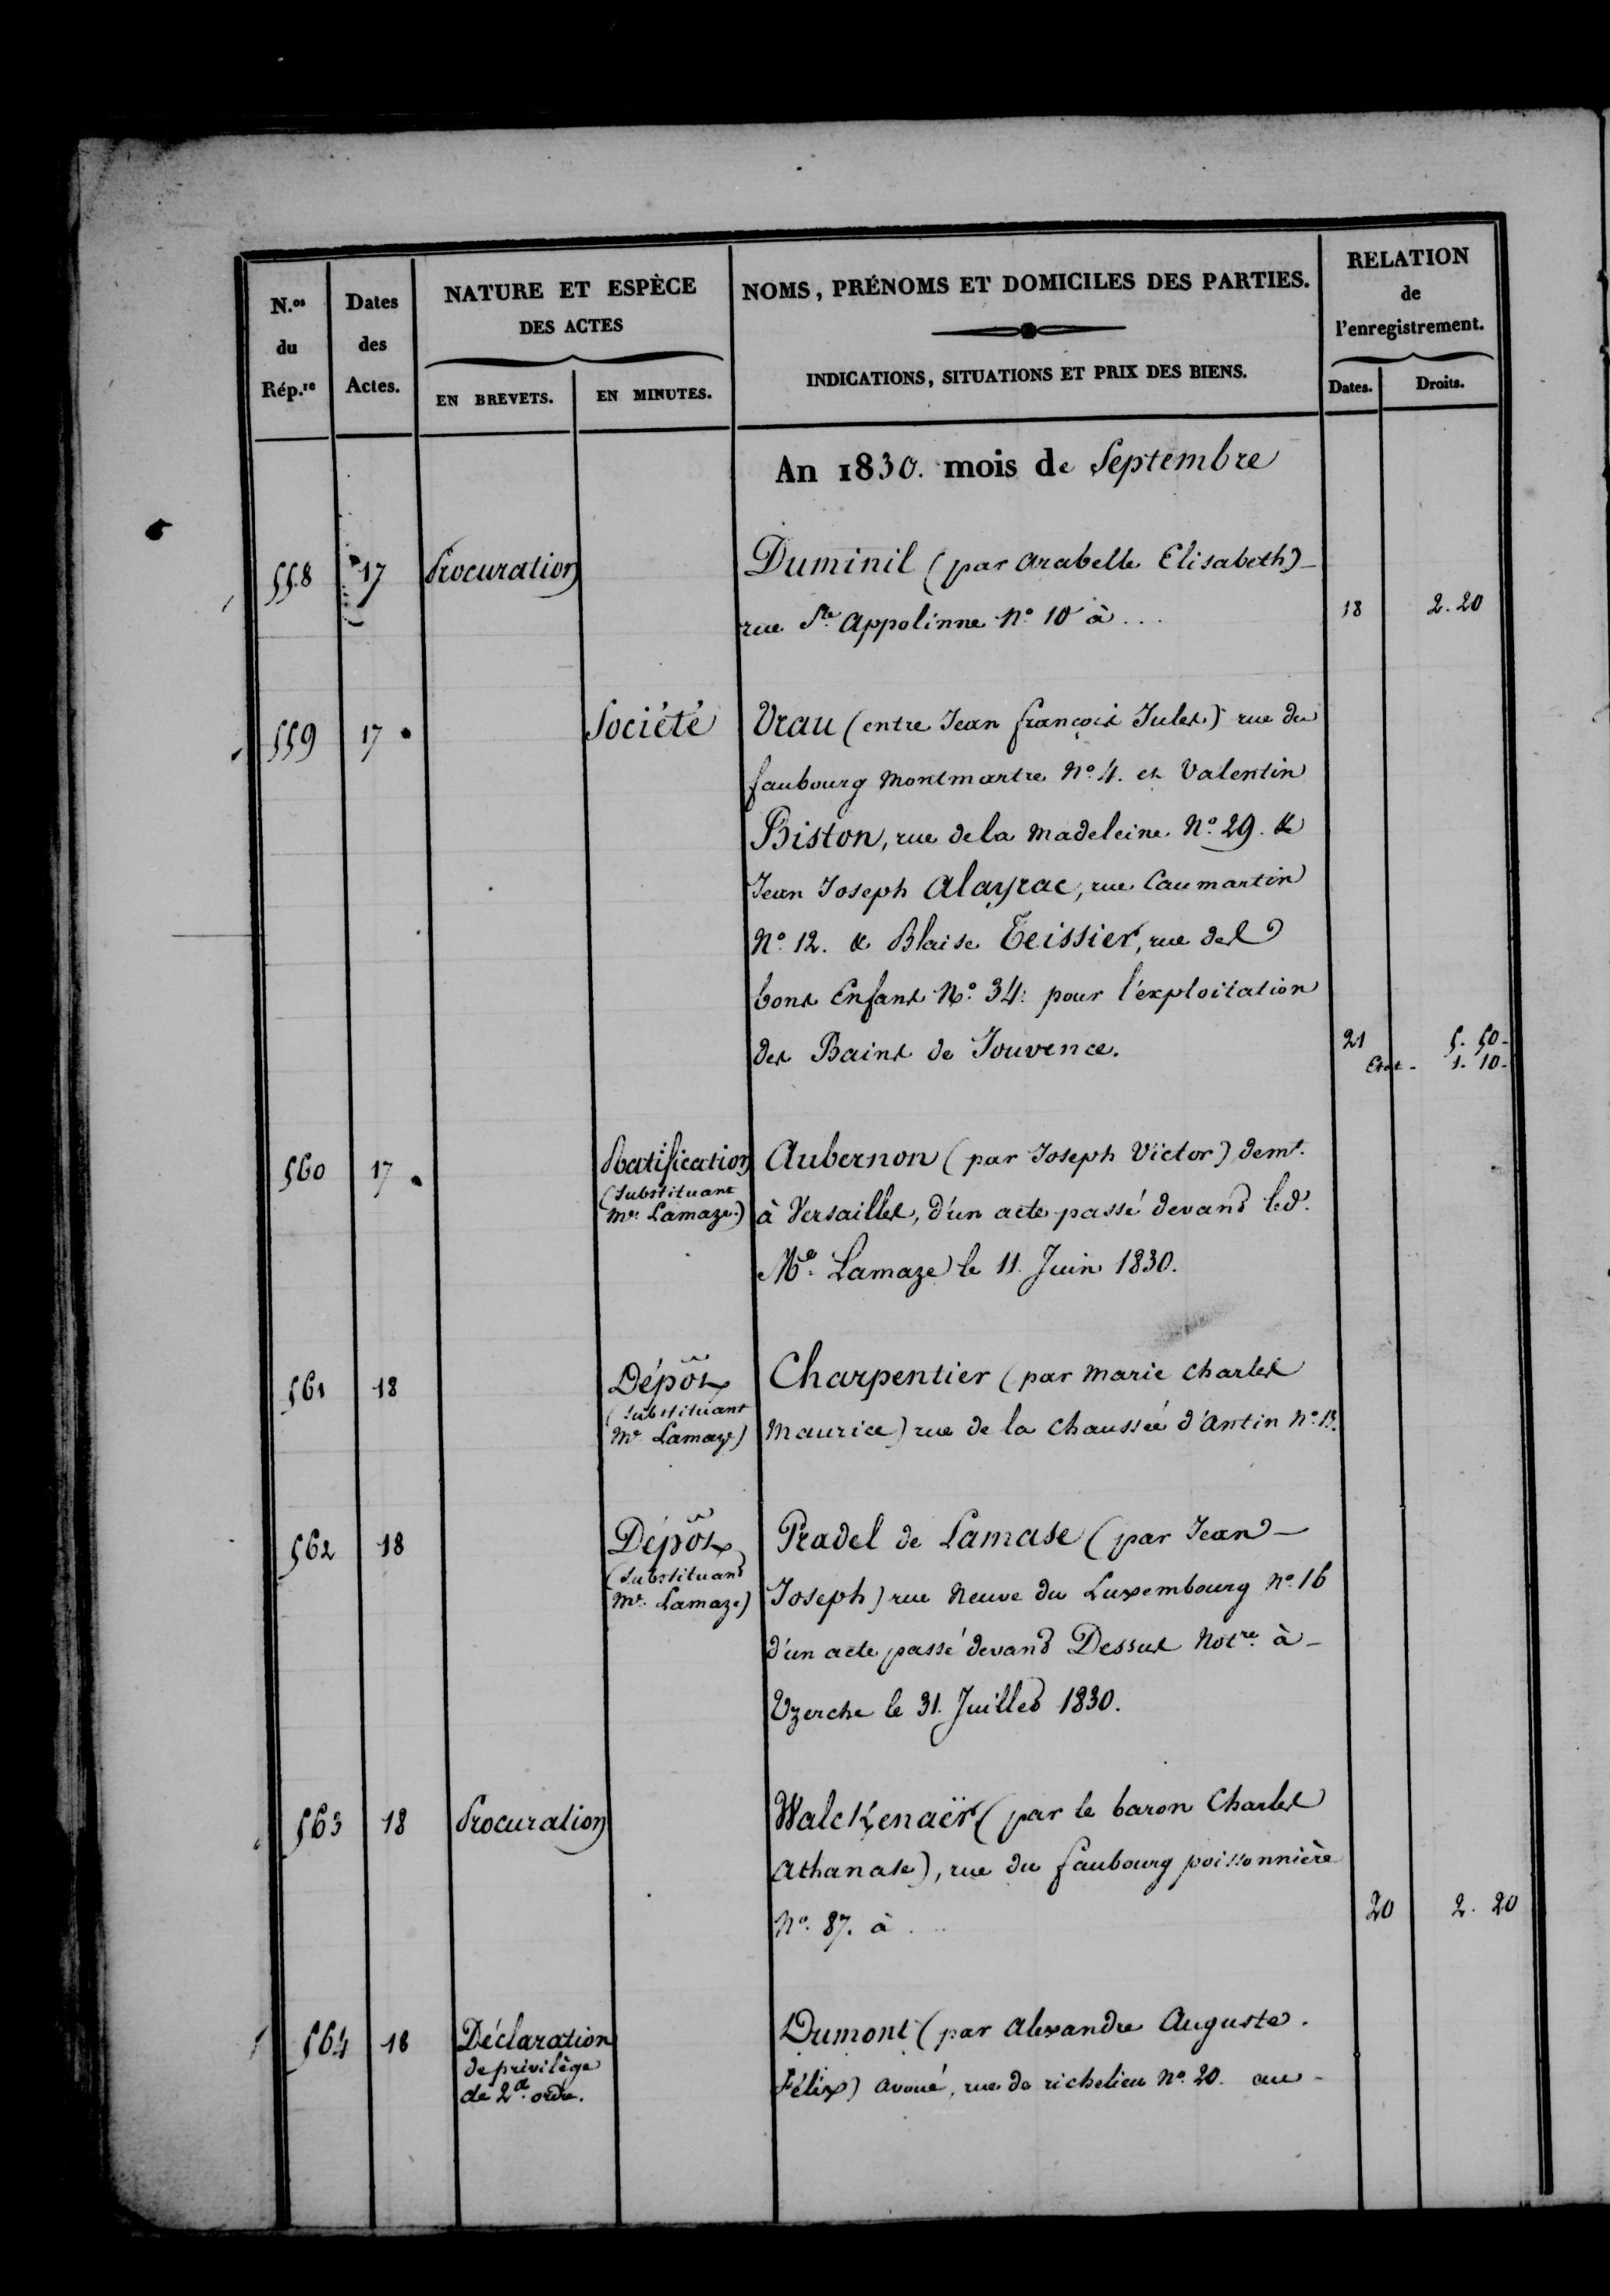 N.os du Rép.re
Dates des Actes.
NATURE ET ESPÈCE DES ACTES
EN BREVETS.
EN MINUTES.
NOMS, PRÉNOMS ET DOMICILES DES PARTIES.
INDICATIONS, SITUATIONS ET PRIX DES BIENS.
RELATION de l'enregistrement.
Dates.
Droits.
An 1830. mois de Septembre
558 17 Procuration Duminil (par Arabelle Elisabeth)
rue Ste Appolinne No. 10 à ... 18 2.20
559 17 Société Vrau (entre Jean françois Jules) rue du
faubourg Montmartre No. 4. et Valentin
Biston, rue de la Madeleine No. 29. &
Jean Joseph Alayrac, rue Caumartin
No. 12. & Blaise Teissier, rue des
bons Enfans No. 34. pour l'exploitation
des Bains de Jouvence. 21 5. 50
Etat - 1. 10
560 17 Ratification Aubernon (par Joseph Victor) demt.
(substituant
Me. Lamaze.) à Versailles, d'un acte passé devant led.
Me. Lamaze le 11. Juin 1830.
561 18 Dépôt Charpentier (par Marie Charles
(substituant
Me Lamaze) Maurice) rue de la Chaussée d'Antin No. 13.
562 18 Dépôt Pradel de Lamase (par Jean
(substituant
Me. Lamaze) Joseph) rue Neuve du Luxembourg No. 16
d'un acte passé devant Dessus Notre. à
Uzerche le 31. Juillet 1830.
563 18 Procuration Walckenaër (par le baron Charles
Athanase), rue du faubourg poissonnière
No. 87. à ... 20 2. 20
564 18 Déclaration Dumont (par Alexandre Auguste
de privilège
de 2d. ordre. Félix) avoué, rue de richelieu No. 20. au